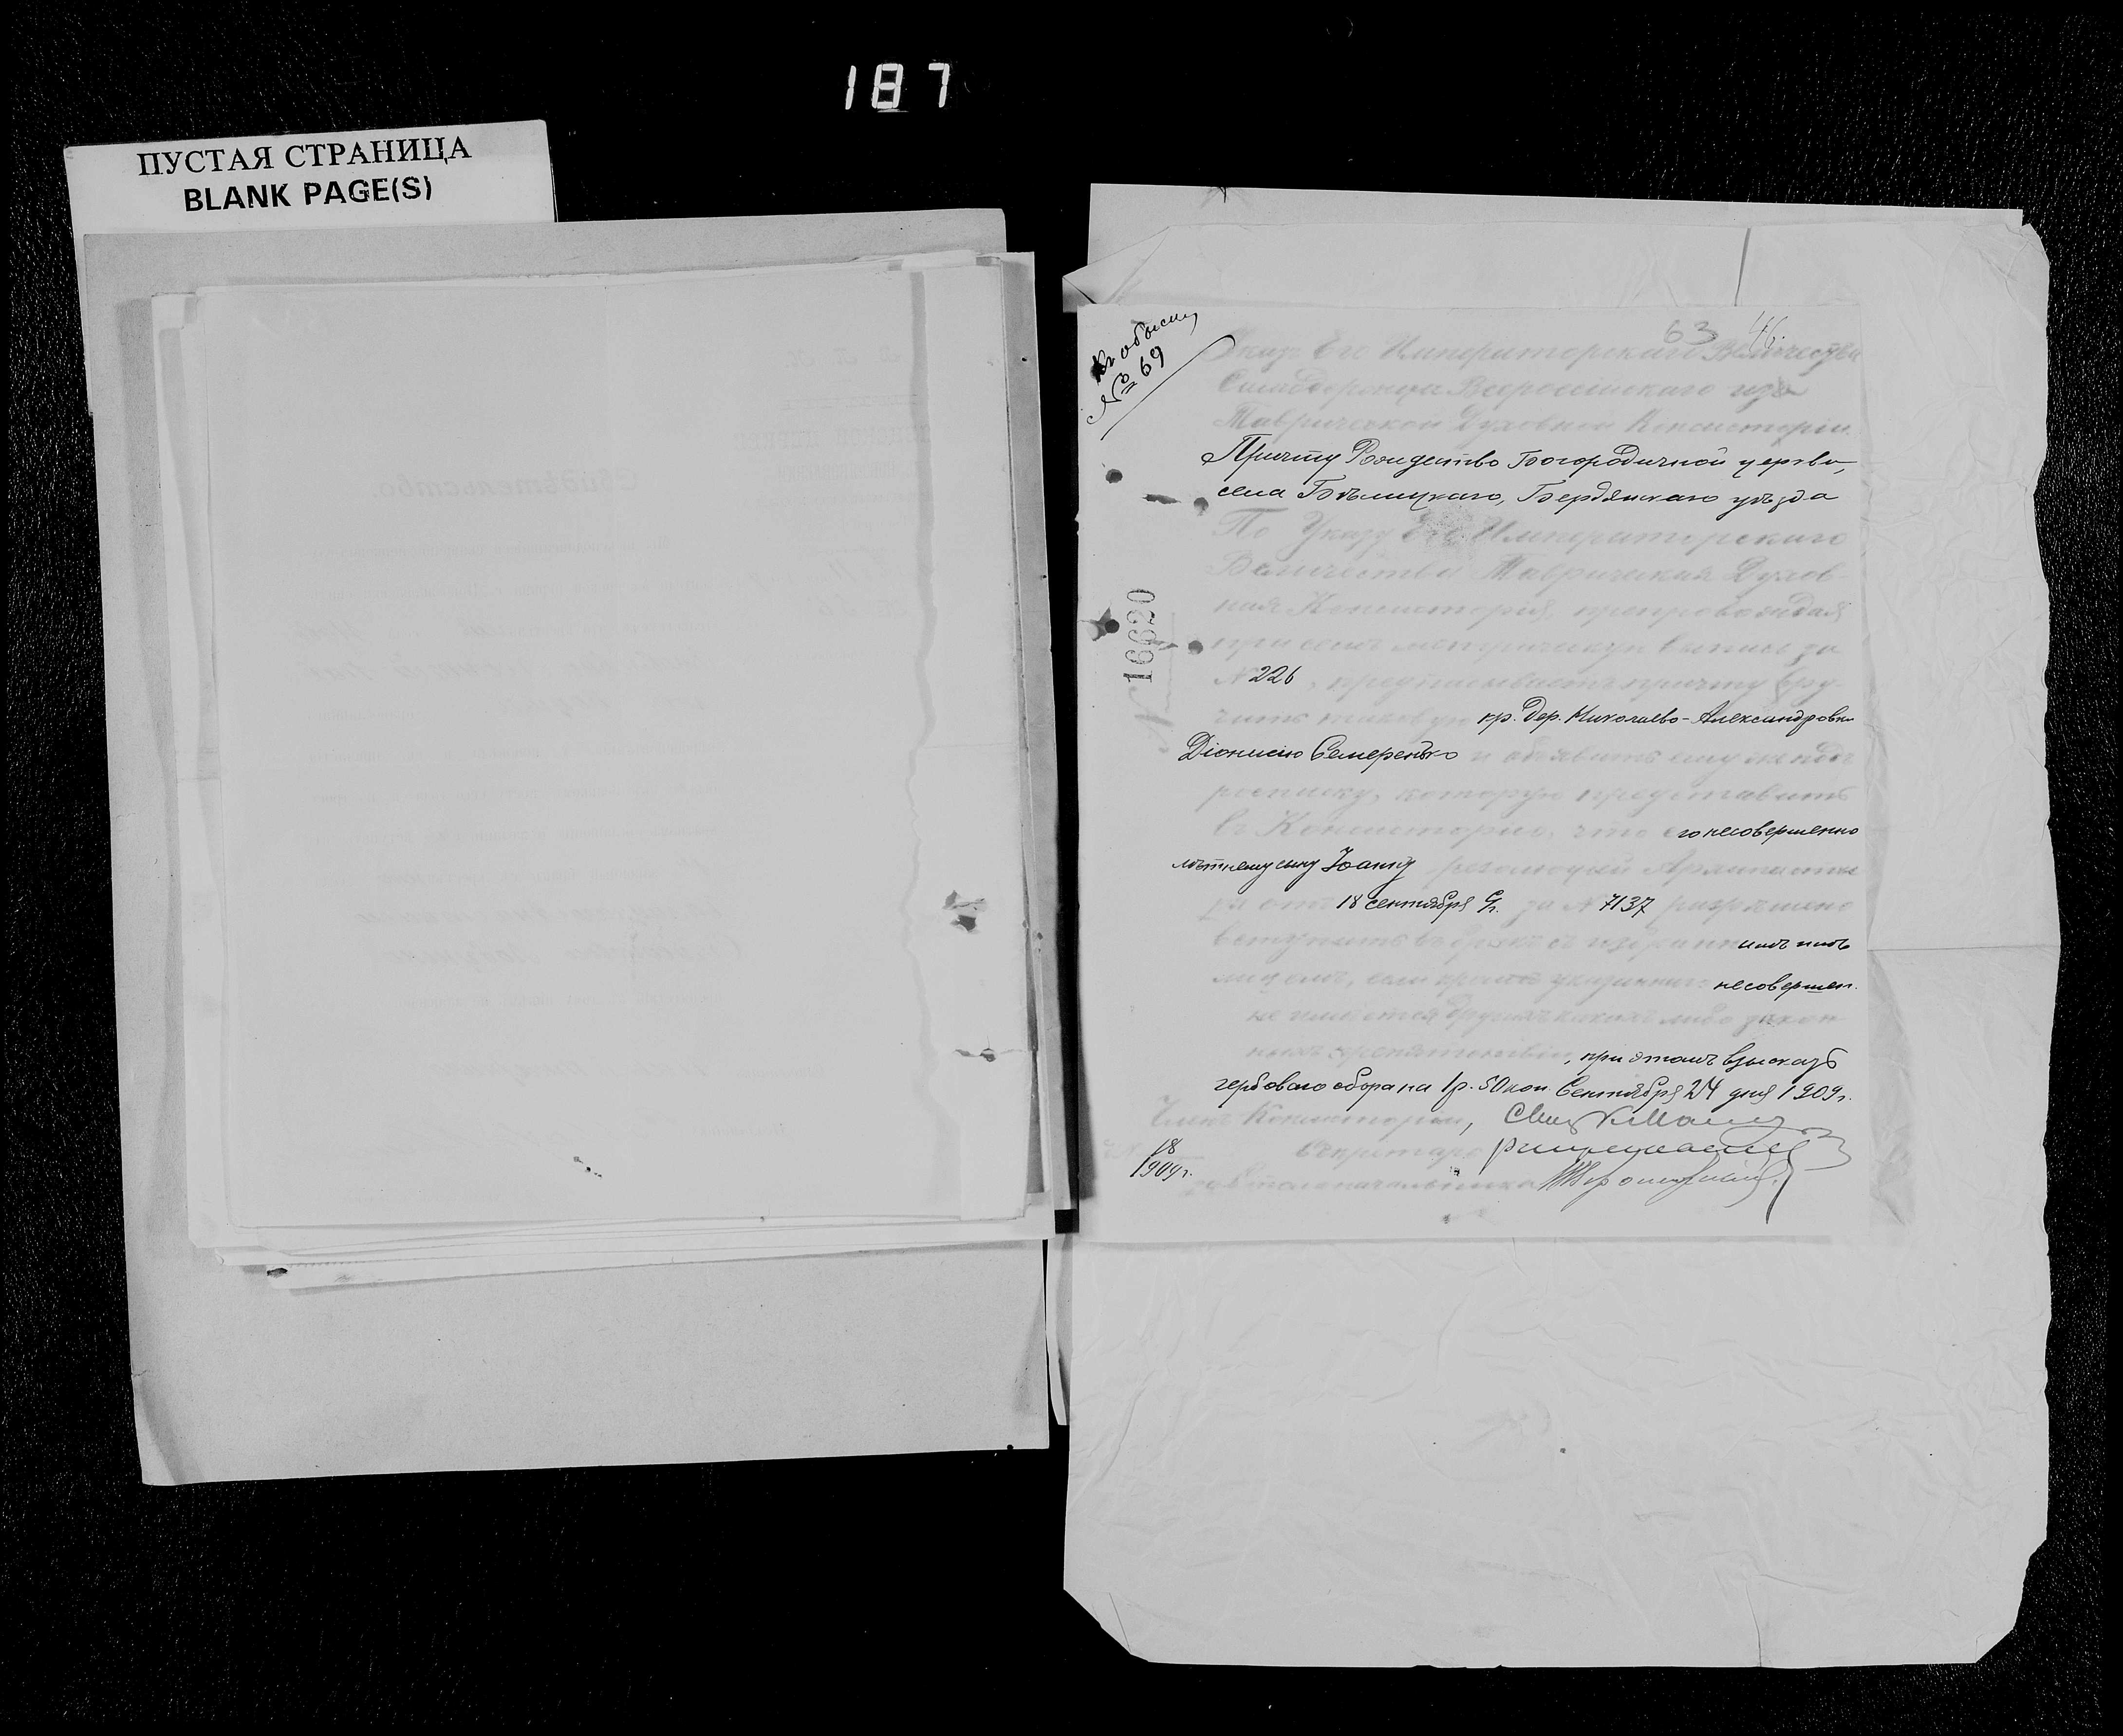 187
ПУСТАЯ СТРАНИЦА
BLANK PAGE(S)
Къ обыску
№ 69
63 46.
Указъ Его Императорскаго Величества
Самодержца Всероссійскаго изъ
Таврической Духовной Консисторіи
Причту Рождество Богородичной церкви,
села Бѣлицкаго, Бердянскаго уѣзда
По Указу Его Императорскаго
Величества Таврическая Духов-
ная Консисторія, препровождая
при семъ метрическую выпись за
№ 226, предписываетъ причту вру-
чить таковую кр. дер. Николаево-Александровки
Діонисію Семеренько и объявить ему подъ
росписку, которую представить
въ Консисторію, что его несовершенно
лѣтнему сыну Іоанну резолюціей Архипасты
ря отъ 18 сентября с/г. за № 7137 разрѣшено
вступить въ бракъ съ избраннымъ имъ
лицомъ, если кромѣ указаннаго несовершен.
не имѣется другихъ какихъ либо закон
ныхъ препятствій, при этомъ взыскать
гербоваго сбора на 1 р. 50 коп. Сентября 24 дня 1909 г.
Членъ Консисторіи,
Секретарь
за Столоначальника
16620
18
1909 г.